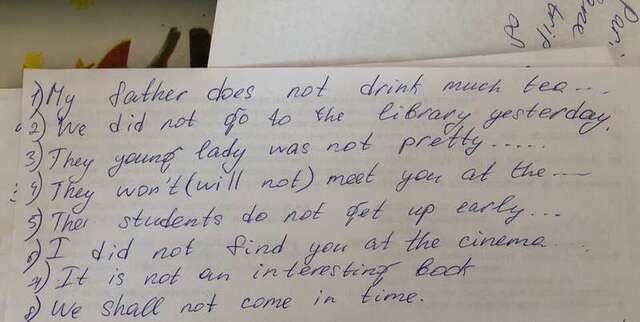 Par,
ance
trip
1) My father does not drink much tea...
2) We did not go to the library yesterday.
3) They young lady was not pretty.....
4) They won't (will not) meet you at the...
5) The students do not get up early...
6) I did not find you at the cinema...
7) It is not an interesting book
8) We shall not come in time.